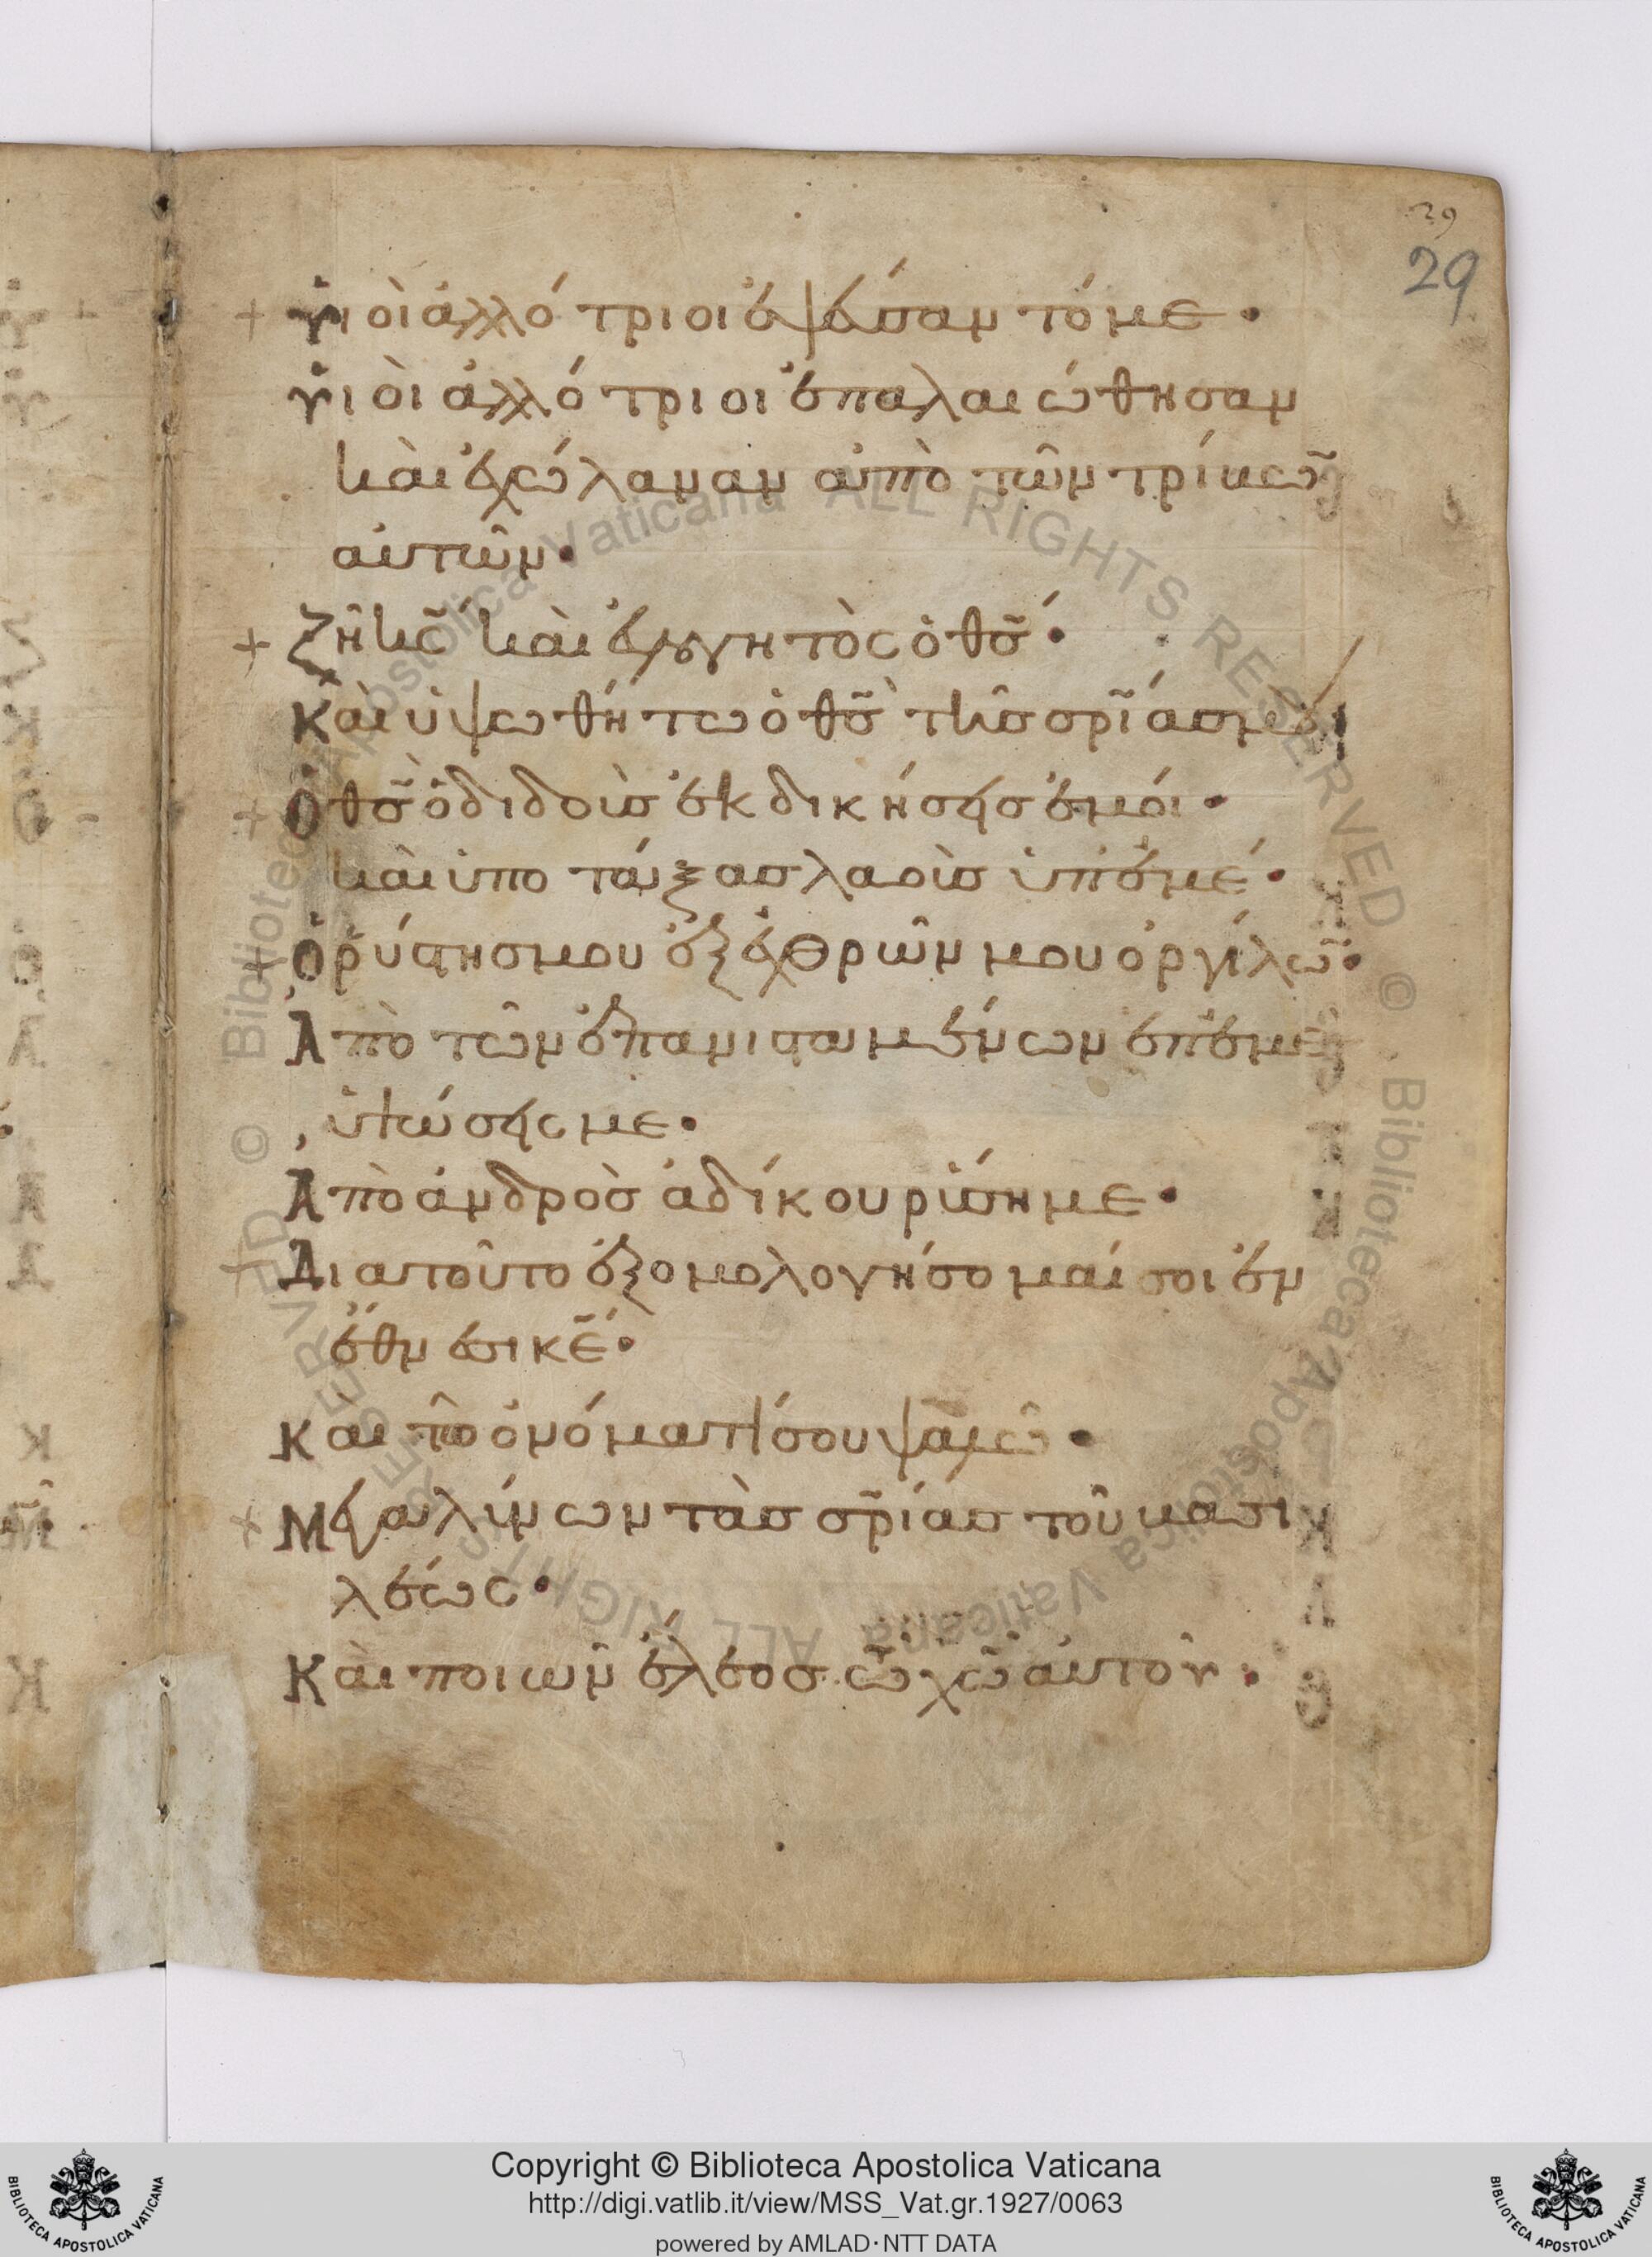 29
29
+ ὑιοὶ ἀλλότριοι ἐψεύσαντό με·
ὑιοὶ ἀλλότριοι ἐπαλαιώθησαν
καὶ ἐχώλαναν ἀπὸ τῶν τρίβων
αὐτῶν·
+ Ζῆ κ̅ς̅ καὶ ἐυλογητὸς ὁ θ̅ς̅·
Καὶ ὑψωθήτω ὁ θ̅ς̅ τῆς σ̅ρ̅ίας μου
+ Ὁ θ̅ς̅ ὁ διδοὺς ἐκδικήσης ἐμοί·
καὶ ὑποτάξας λαοὺς ὑπ' ἐμέ·
+ Ὁ ῥύστης μου ἐξ ἐχθρῶν μου ὀργίλων·
Ἀπὸ τῶν ἐπανισταμένων ἐπ' ἐμὲ
ὑψώσης με·
Ἀπὸ ἀνδρὸς ἀδίκου ρύση με·
+ Διατοῦτο ἐξομολογήσομαί σοι ἐν
ἔθνεσι κ̅ε̅·
Και τῶ ὀνόματί σου ψαλῶ·
+ Μεγαλύνων τὰς σ̅ρ̅ίας τοῦ βασι
λέως·
Καὶ ποιων ἔλεος τῶ χ̅ω̅ αὐτοῦ·
Copyright © Biblioteca Apostolica Vaticana
http://digi.vatlib.it/view/MSS_Vat.gr.1927/0063
powered by AMLAD·NTT DATA
BIBLIOTECA APOSTOLICA VATICANA
BIBLIOTECA APOSTOLICA VATICANA
© Biblioteca Apostolica Vaticana ALL RIGHTS RESERVED © Biblioteca Apostolica Vaticana ALL RIGHTS RESERVED